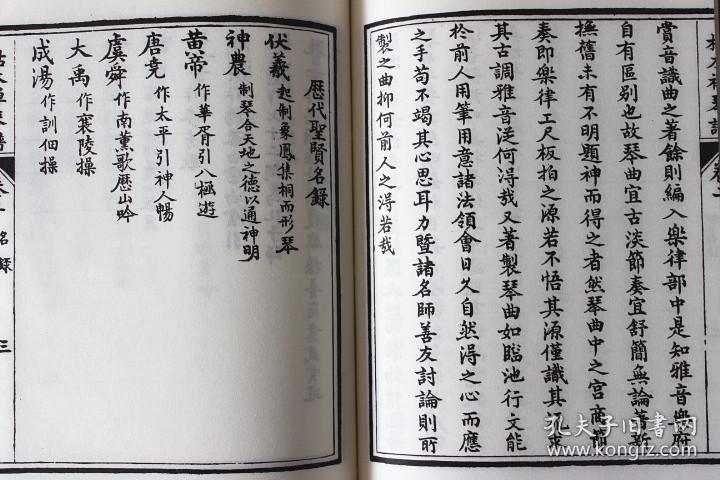 賞音識曲之著餘則編入樂律部中是知雅音與
自有區别也故琴曲宜古淡節奏宜舒簡無論著新
撫舊未有不明題神而得之者然琴曲中之宮商節
奏即樂律工尺板拍之源若不悟其源僅識其
其古調雅音泛何淂哉又著製琴曲如臨池行文能
扵前人用筆用意諸法領會日久自然淂之心而應
之手苟不竭其心思耳力暨諸名師善友討論則所
製之曲抑何前人之淂若哉
歷代聖賢名錄
伏羲 起制象鳳集桐而形琴
神農 制琴合天地之德以通神明
黄帝 作華胥引八極遊
唐堯 作太平引神人暢
虞舜 作南薰歌歷山吟
大禹 作襄陵操
成湯 作訓佃操
名錄
三
孔夫子旧书网